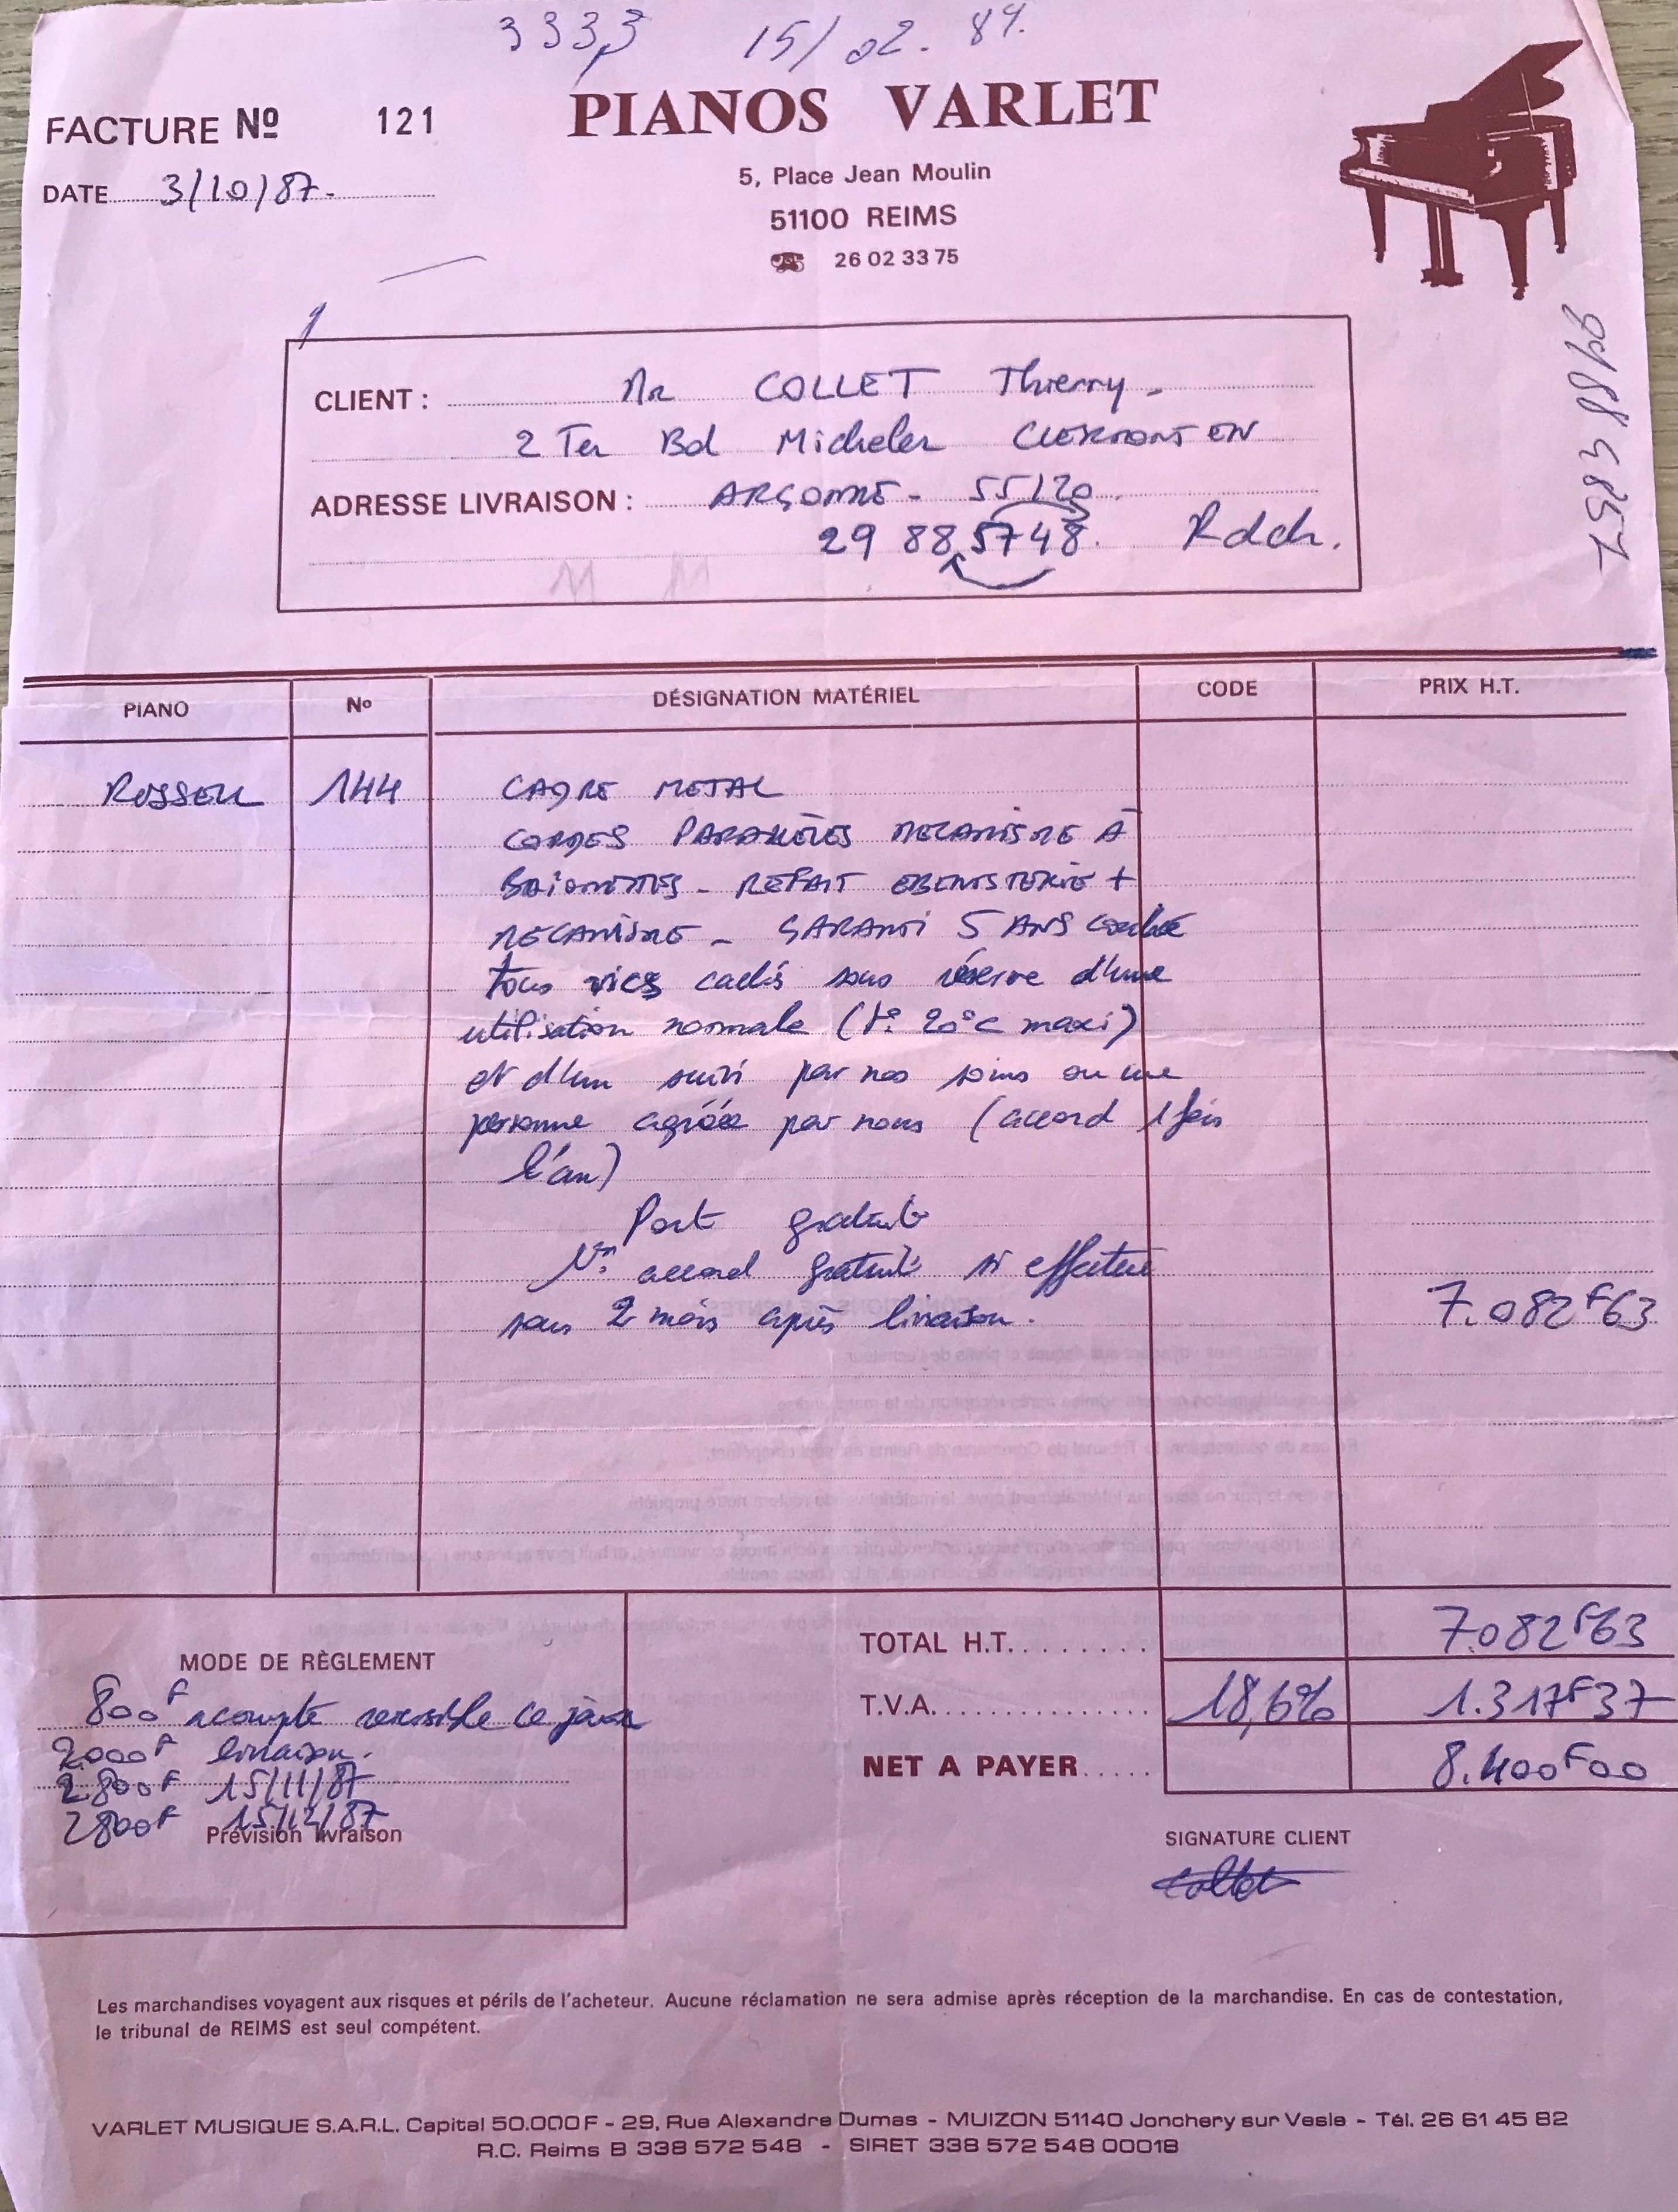 3333 15/02.84.
FACTURE Nº 121
PIANOS VARLET
DATE 3/10/87-
5, Place Jean Moulin
51100 REIMS
☎ 26 02 33 75
CLIENT : Mr COLLET Thierry -
2 Ter Bd Michelet CLERMONT EN
ADRESSE LIVRAISON : ARGONNE - 55120.
29 88 57 48. Rdch.
PIANO No DÉSIGNATION MATÉRIEL CODE PRIX H.T.
ROSSELL 144 CADRE METAL
CORDES PARALLÈLES MECANISME À
BAIONETTES - REFAIT EBENISTERIE +
MECANISME - GARANTI 5 ANS contre
tous vices cachés sous réserve d'une
utilisation normale (t° 20°c maxi)
et d'un suivi par nos soins ou une
personne agréée par nous (accord 1 fois
l'an)
Port gratuit
1er accord gratuit si effectué
sous 2 mois après livraison. 7.082F63
MODE DE RÈGLEMENT
800F acompte ce jour
2000F livraison.
2.800F 15/11/87
2800F 15/12/87
Prévision livraison
TOTAL H.T. . . . . . . . 7.082F63
T.V.A. . . . . . . . . . . . . . . 18,6% 1.317F37
NET A PAYER . . . . . 8.400F00
SIGNATURE CLIENT
Collet
Les marchandises voyagent aux risques et périls de l'acheteur. Aucune réclamation ne sera admise après réception de la marchandise. En cas de contestation,
le tribunal de REIMS est seul compétent.
VARLET MUSIQUE S.A.R.L. Capital 50.000 F - 29, Rue Alexandre Dumas - MUIZON 51140 Jonchery sur Vesle - Tél. 26 61 45 82
R.C. Reims B 338 572 548 - SIRET 338 572 548 00018